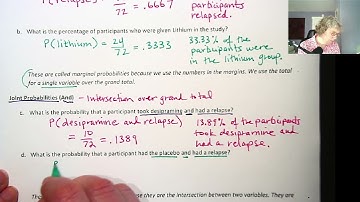 P(relapse) = 48/72 = .6667 participants
relapsed.
b. What is the percentage of participants who were given Lithium in the study?
P(lithium) = 24/72 = .3333 33.33% of the
participants were
in the lithium group.
These are called marginal probabilities because we use the numbers in the margins. We use the total
for a single variable over the grand total.
Joint Probabilities (And) - Intersection over grand total
c. What is the probability that a participant took desipramine and had a relapse?
P(desipramine and relapse) 13.89% of the participants
= 10/72 = .1389 took desipramine and
had a relapse.
d. What is the probability that a participant had the placebo and had a relapse?
P
they are the intersection between two variables. They are